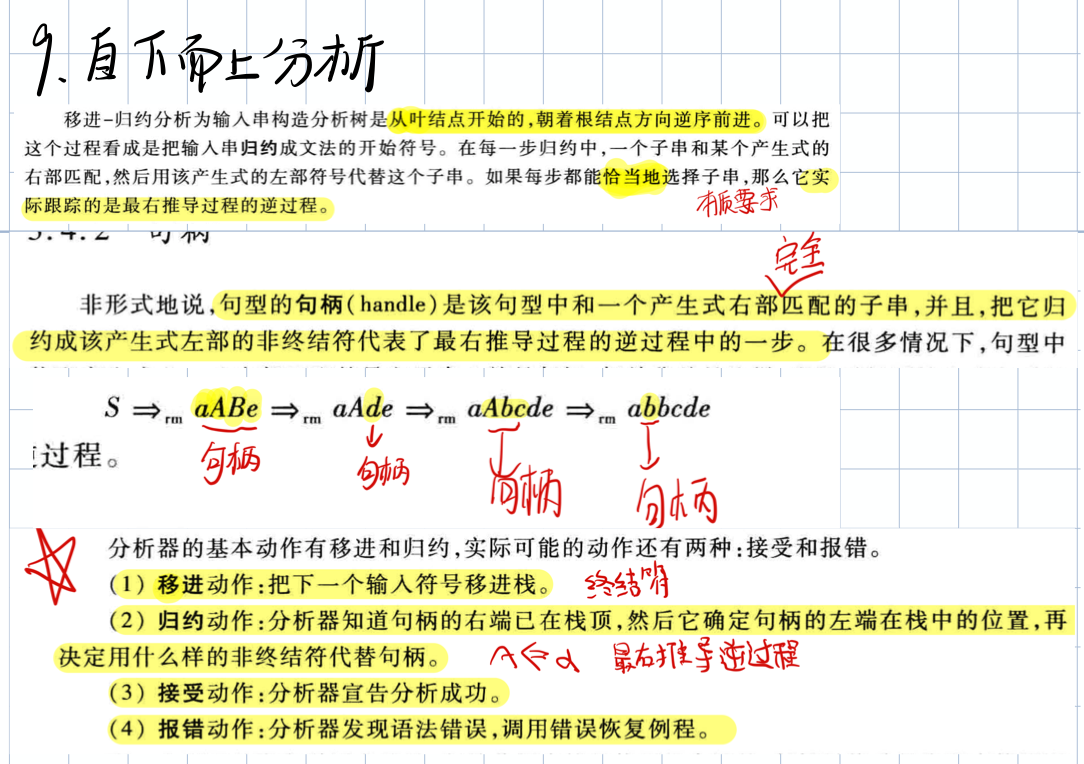 9、自下而上分析
移进-归约分析为输入串构造分析树是从叶结点开始的,朝着根结点方向逆序前进。可以把
这个过程看成是把输入串归约成文法的开始符号。在每一步归约中,一个子串和某个产生式的
右部匹配,然后用该产生式的左部符号代替这个子串。如果每步都能恰当地选择子串,那么它实
际跟踪的是最右推导过程的逆过程。
要求
句柄
完全
非形式地说,句型的句柄(handle)是该句型中和一个产生式右部匹配的子串,并且,把它归
约成该产生式左部的非终结符代表了最右推导过程的逆过程中的一步。在很多情况下,句型中
S ⇒rm aABe ⇒rm aAde ⇒rm aAbcde ⇒rm abbcde
过程。
句柄 句柄 句柄 句柄
分析器的基本动作有移进和归约,实际可能的动作还有两种:接受和报错。
(1) 移进动作:把下一个输入符号移进栈。 终结符
(2) 归约动作:分析器知道句柄的右端已在栈顶,然后它确定句柄的左端在栈中的位置,再
决定用什么样的非终结符代替句柄。 A⇐α 最右推导逆过程
(3) 接受动作:分析器宣告分析成功。
(4) 报错动作:分析器发现语法错误,调用错误恢复例程。